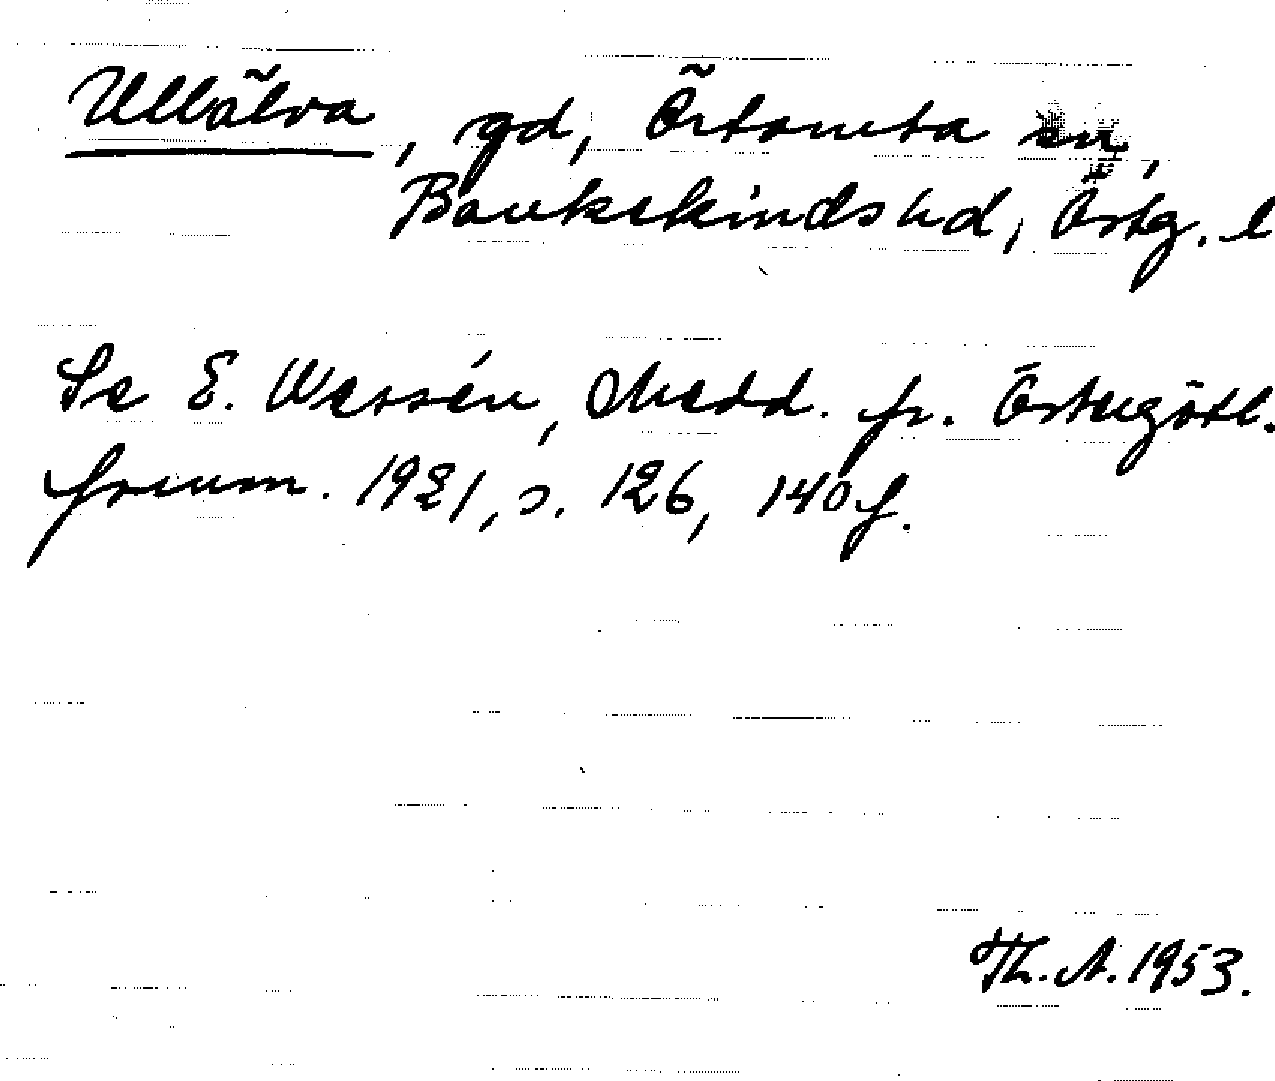 Ullälva, gd, Örtomta sn,
Bankekinds hd, Östg. l
Se E. Wessén, Medd. fr. Östergötl.
fornm. 1921, s. 126, 140 f.
Th. A. 1953.